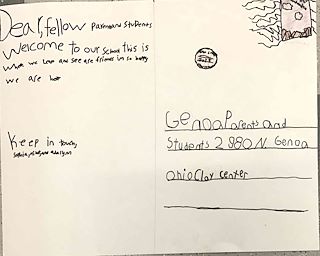 Dear, fellow Parents and Students
Welcome to our School this is
where we love and see are friends im so happy
we are
Keep in touch,
Genoa Parents and
Students 2980 N. Genoa
Ohio Clay center